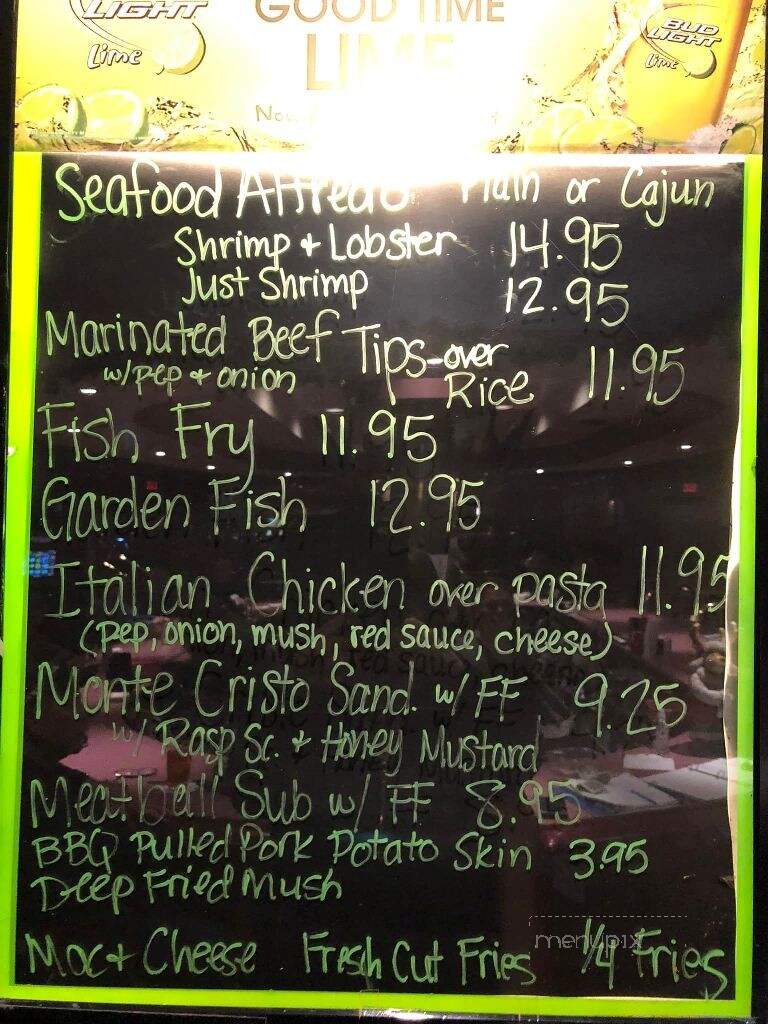 LIGHT
Lime
GOOD TIME
LIME
BUD
LIGHT
Lime
Seafood Alfredo Plain or Cajun
Shrimp + Lobster 14.95
Just Shrimp 12.95
Marinated Beef Tips over Rice 11.95
w/pep + onion
Fish Fry 11.95
Garden Fish 12.95
Italian Chicken over pasta 11.95
(pep, onion, mush, red sauce, cheese)
Monte Cristo Sand. w/ FF 9.25
w/ Rasp Sc. + Honey Mustard
Meatball Sub w/ FF 8.95
BBQ Pulled Pork Potato Skin 3.95
Deep Fried Mush
Mac + Cheese Fresh Cut Fries 1/4 Fries
menupix